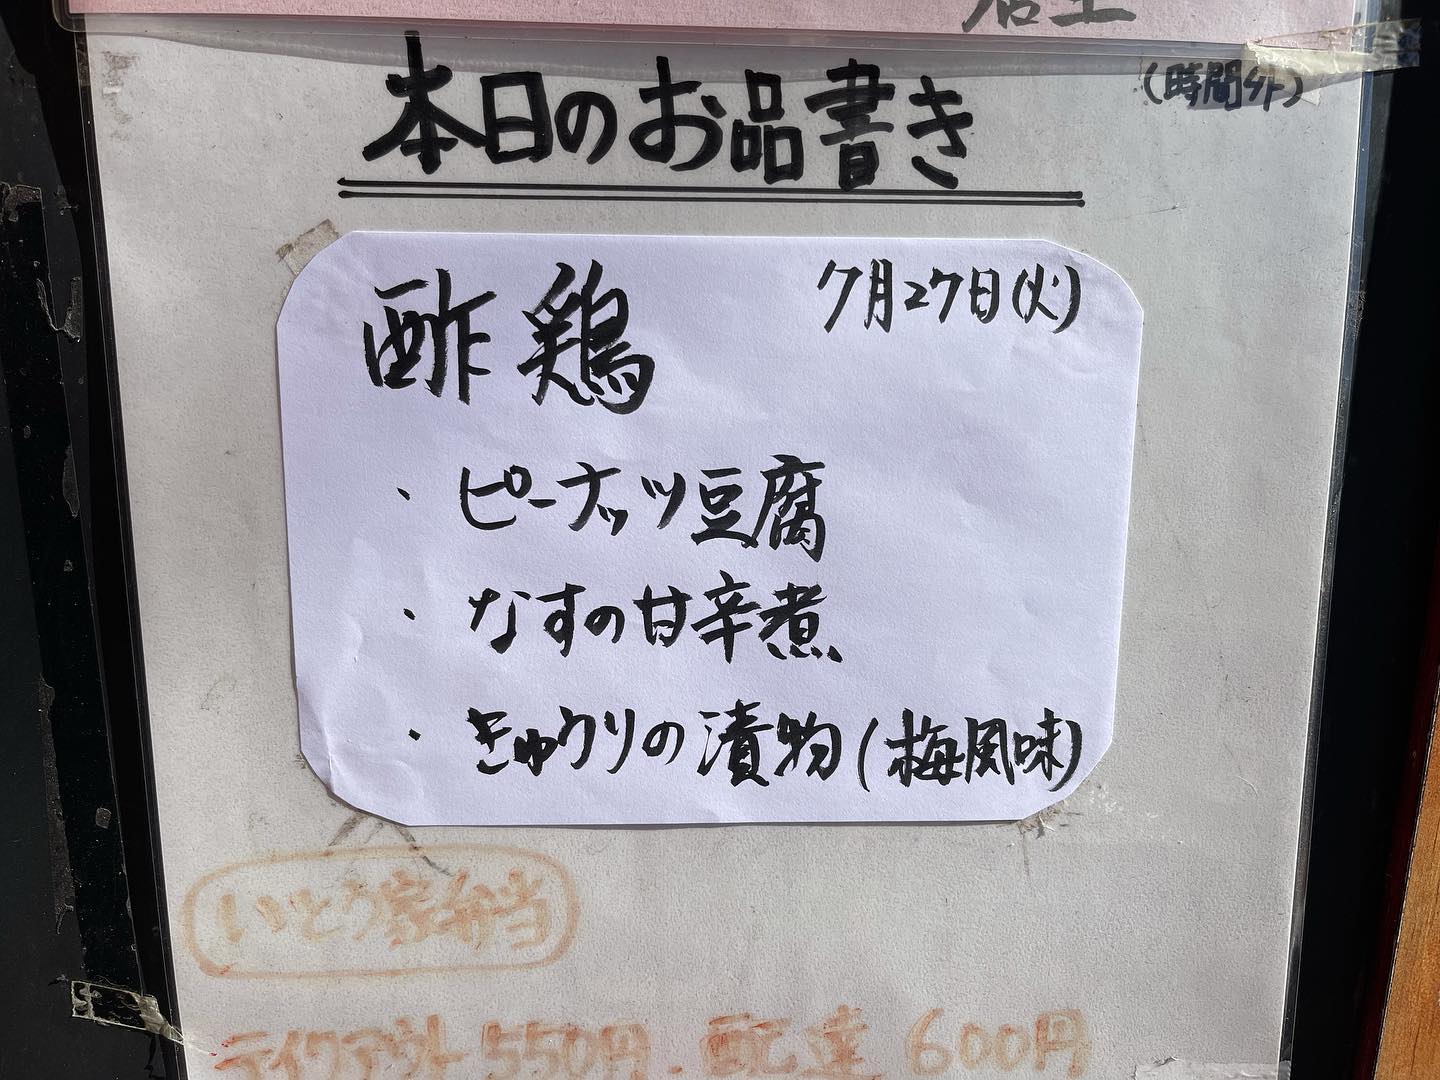 店主
(時間外)
本日のお品書き
7月27日(火)
酢鶏
・ピーナッツ豆腐
・なすの甘辛煮
・きゅうりの漬物(梅風味)
いとう家弁当
テイクアウト550円.配達600円